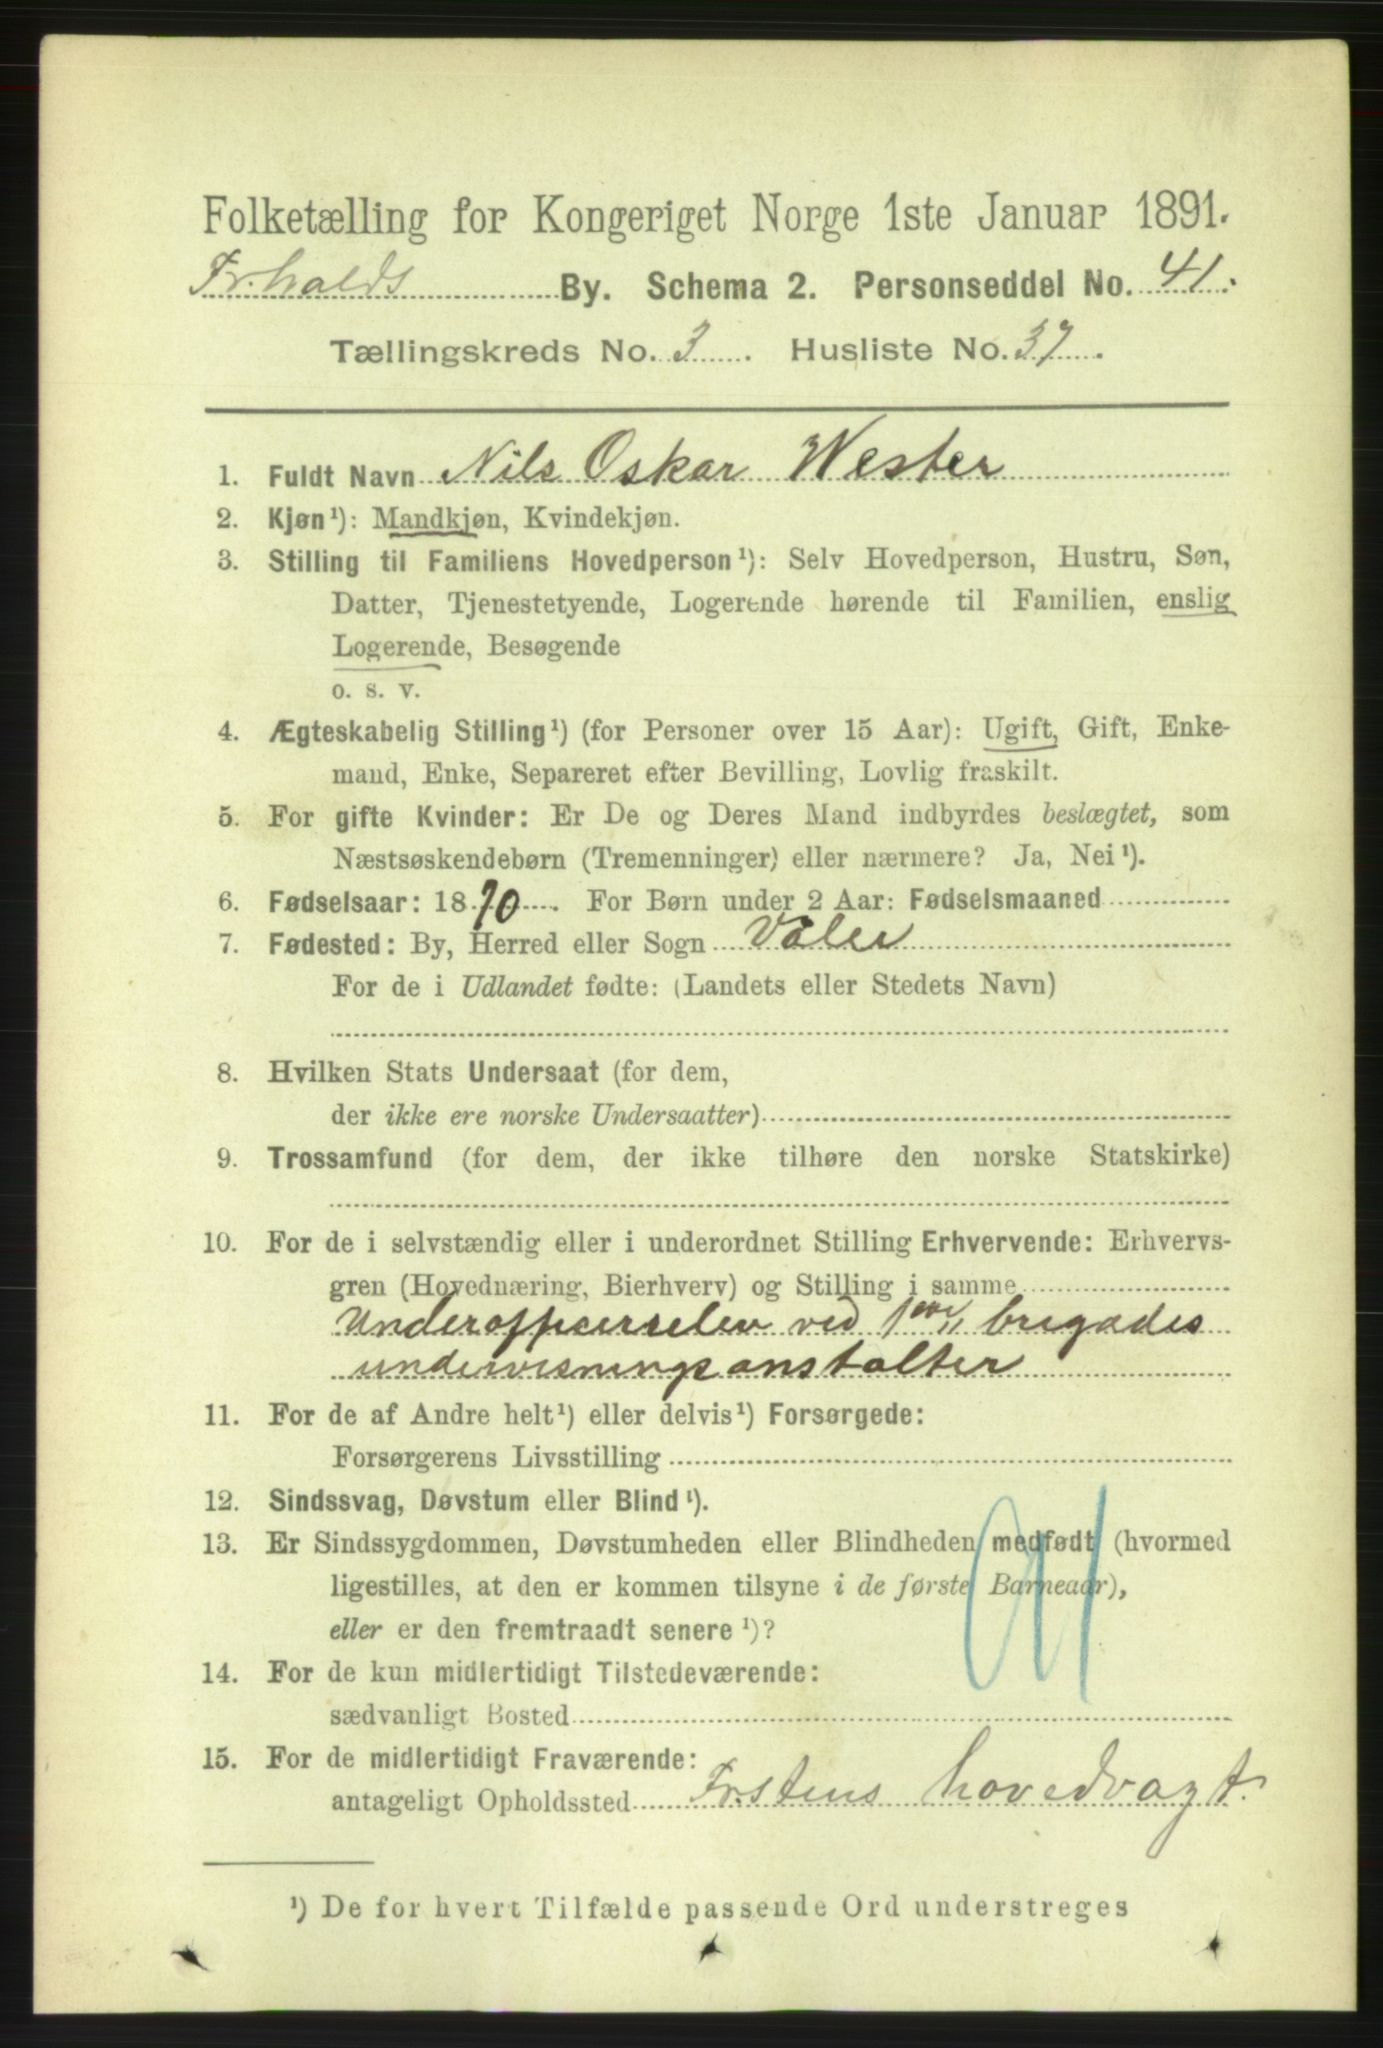 Folketælling for Kongeriget Norge 1ste Januar 1891.
Fr.halds By. Schema 2. Personseddel No. 41.
Tællingskreds No. 3. Husliste No. 37.
1. Fuldt Navn Nils Oskar Wester
2. Kjøn¹): Mandkjøn, Kvindekjøn.
3. Stilling til Familiens Hovedperson¹): Selv Hovedperson, Hustru, Søn,
Datter, Tjenestetyende, Logerende hørende til Familien, enslig
Logerende, Besøgende
o. s. v.
4. Ægteskabelig Stilling¹) (for Personer over 15 Aar): Ugift, Gift, Enke-
mand, Enke, Separeret efter Bevilling, Lovlig fraskilt.
5. For gifte Kvinder: Er De og Deres Mand indbyrdes beslægtet, som
Næstsøskendebørn (Tremenninger) eller nærmere? Ja, Nei¹).
6. Fødselsaar: 1870. For Børn under 2 Aar: Fødselsmaaned
7. Fødested: By, Herred eller Sogn Våler
For de i Udlandet fødte: (Landets eller Stedets Navn)
8. Hvilken Stats Undersaat (for dem,
der ikke ere norske Undersaatter)
9. Trossamfund (for dem, der ikke tilhøre den norske Statskirke)
10. For de i selvstændig eller i underordnet Stilling Erhvervende: Erhvervs-
gren (Hovednæring, Bierhverv) og Stilling i samme
Underofficerselev ved brigades
undervisningsanstalter
11. For de af Andre helt¹) eller delvis¹) Forsørgede:
Forsørgerens Livsstilling
12. Sindssvag, Døvstum eller Blind¹).
13. Er Sindssygdommen, Døvstumheden eller Blindheden medfødt (hvormed
ligestilles, at den er kommen tilsyne i de første Barneaar),
eller er den fremtraadt senere¹)?
14. For de kun midlertidigt Tilstedeværende:
sædvanligt Bosted
15. For de midlertidigt Fraværende:
antageligt Opholdssted Fr.stens hovedvagt.
¹) De for hvert Tilfælde passende Ord understreges